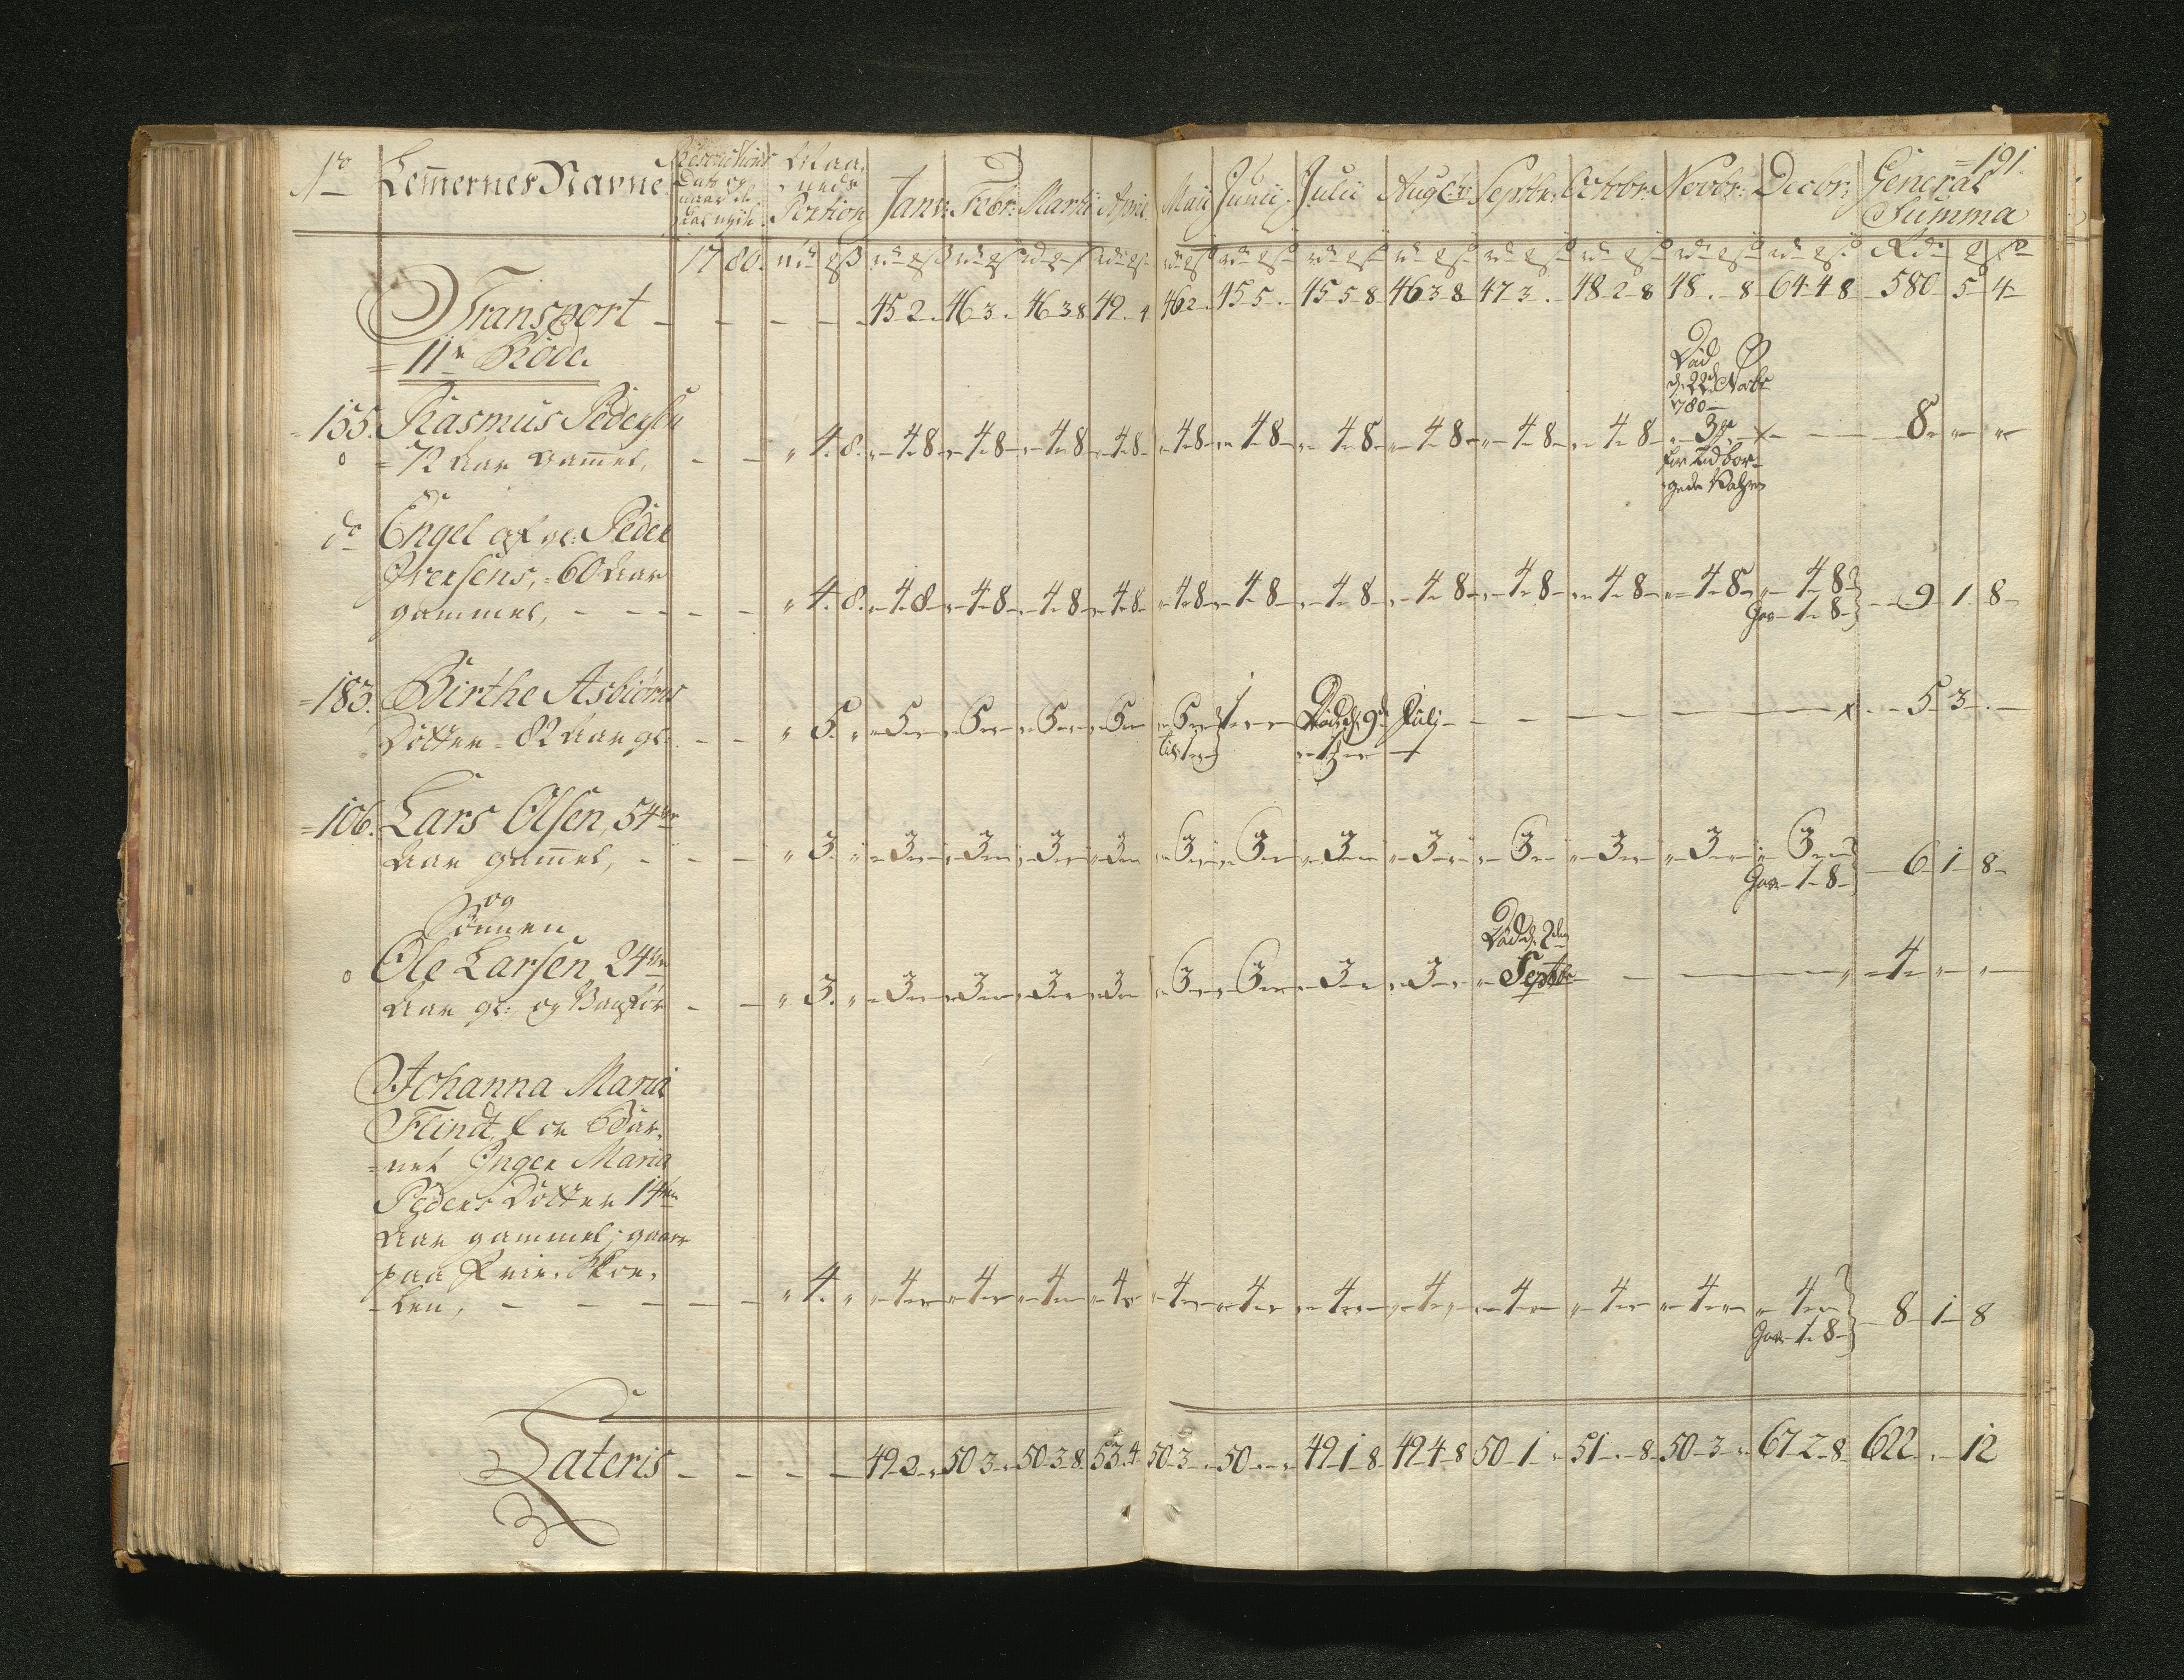 =191.
No Lem̅ernes Navne Resolutions Dato og Maa, neds Portion Janv: Febr: Martii April Maii Junii Julii Aug: Septbr: Octobr: Novbr: Decbr: General Summa
1780.
Transport - - - - 45 2 . 46 3 . 46 3 8 49 . 4 46 2 . 45 5 . 45 5 8 46 3 8 47 3 . 48 2 8 48 . 8 64 4 8 580 5 4
= 11te Rode.
Död
d. 22de Novbr
1780
=155. Rasmus Pedersen
= 72 Aar gam̅el, - - " 4. 8. " 4 8 " 4 8 " 4 8 " 4 8 " 4 8 " 4 8 " 4 8 " 4 8 " 4 8 " 4 8 " 3 8. " "
do Engel afg: Peder
Iversens, =60 Aar
gammel, - - - - " 4. 8. " 4 8 " 4 8 " 4 8 " 4 8 " 4 8 " 4 8 " 4 8 " 4 8 " 4 8 " 4 8 " 4 8 " 4 8 9 1 8
1 8
=183. Birthe Asbiörns
Dotter = 82 Aar gl: - - " 5. " " 5 " " 5 " " 5 " " 5 " " 5 " 1 " " Död d. 9de Julij - - - - 5 3 .
=106. Lars Olsen, 54de
Aar gam̅el, - - - " 3. " " 3 " " 3 " " 3 " " 3 " " 3 " " 3 " " 3 " " 3 " " 3 " " 3 " " 3 " " 3 " 6 1 8
1 8
og
Sönnen
Ole Larsen, 24de Död d. 2den
Aar gl: og - - " 3. " " 3 " " 3 " " 3 " " 3 " " 3 " " 3 " " 3 " " 3 " " Septbr - - - 4 " "
Johanna Maria
Flindt for Bar,
=net Inger Maria
Peders Dotter 14de
Aar gammel; gaaer
paa Frie, Skoe,
=len, - - - - - " 4. " " 4 " " 4 " " 4 " " 4 " " 4 " " 4 " " 4 " " 4 " " 4 " " 4 " " 4 " " 4 " 8 1 8
1 8
Lateris - - - - 49 2 . 50 3 . 50 3 8 53 . 4 50 3 . 50 . . 49 1 8 49 4 8 50 1 . 51 . 8 50 3 . 67 2 8 622 . 12